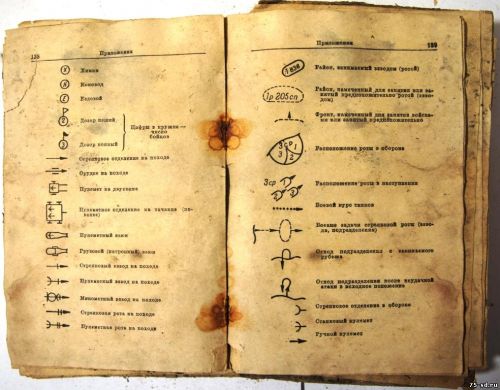 138
Приложения
К
Химик
К
Коновод
Е
Ездовой
Дозор пеший
Цифры в кружке —
число
бойцов
3
Дозор конный
Стрелковое отделение на походе
Орудие на походе
Пулемет на двуколке
Пулеметное отделение на тачанке (по-
Пулеметный взвод
Грузовой (патронный) взвод
Стрелковый взвод на походе
Пулеметный взвод на походе
Минометный взвод на походе
Стрелковая рота на походе
Пулеметная рота на походе
Приложения
139
Район, занимаемый взводом (ротой)
1р 205сп
Район, намеченный для занятия или за-
нятый предположительно ротой (взво-
дом)
Фронт, намеченный для занятия войска-
ми или занятый предположительно
3ср
1
2
3
Расположение роты в обороне
3ср
Расположение роты в наступлении
Боевой курс танков
Боевые задачи стрелковой роты (взво-
да, подразделения)
Отход подразделения с занимаемого
рубежа
Отход подразделения после неудачной
атаки в исходное положение
Стрелковое отделение в обороне
Станковый пулемет
Ручной пулемет
75-sd.ru